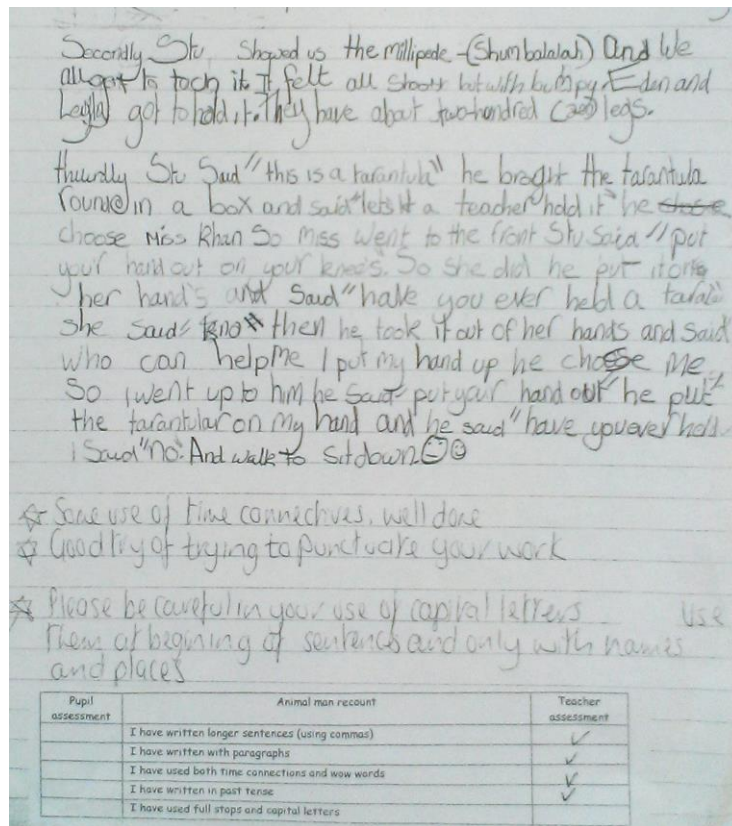 Secondly Stu Showed us the millipede -(Shumbalalah) And We
all got to toch it It felt all but with bumpy. Eden and
Leyla got to hold it. They have about two-hundred (200) legs.
thuurdly Stu Said "this is a tarantula" he broght the tarantula
round in a box and said "lets let a teacher hold it" he
choose Miss Khan So miss went to the front Stu Said "put
your hand out on your knees. So she did he put it on
her hand's and Said "have you ever held a
she said "no" then he took it out of her hands and Said
who can help Me I put my hand up he chose Me.
So i went up to him he Said put your hand out" he put
the tarantular on my hand and he said "have you ever hold
i Said "no". And walk to sit down.
Some use of time connectives, well done
Good try of trying to punctuate your work
Please be careful in your use of capital letters Use
them at begining of sentences and only with names
and places
Pupil assessment Animal man recount Teacher assessment
I have written longer sentences (using commas)
I have written with paragraphs
I have used both time connections and wow words
I have written in past tense
I have used full stops and capital letters